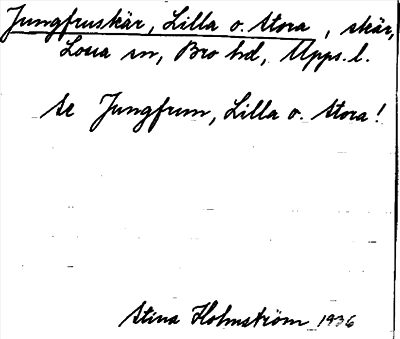 Jungfruskär, Lilla o. Stora, skär,
Lossa sn, Bro hd, Upps. l.
Se Jungfrun, Lilla o. Stora!
Stina Holmström 1936